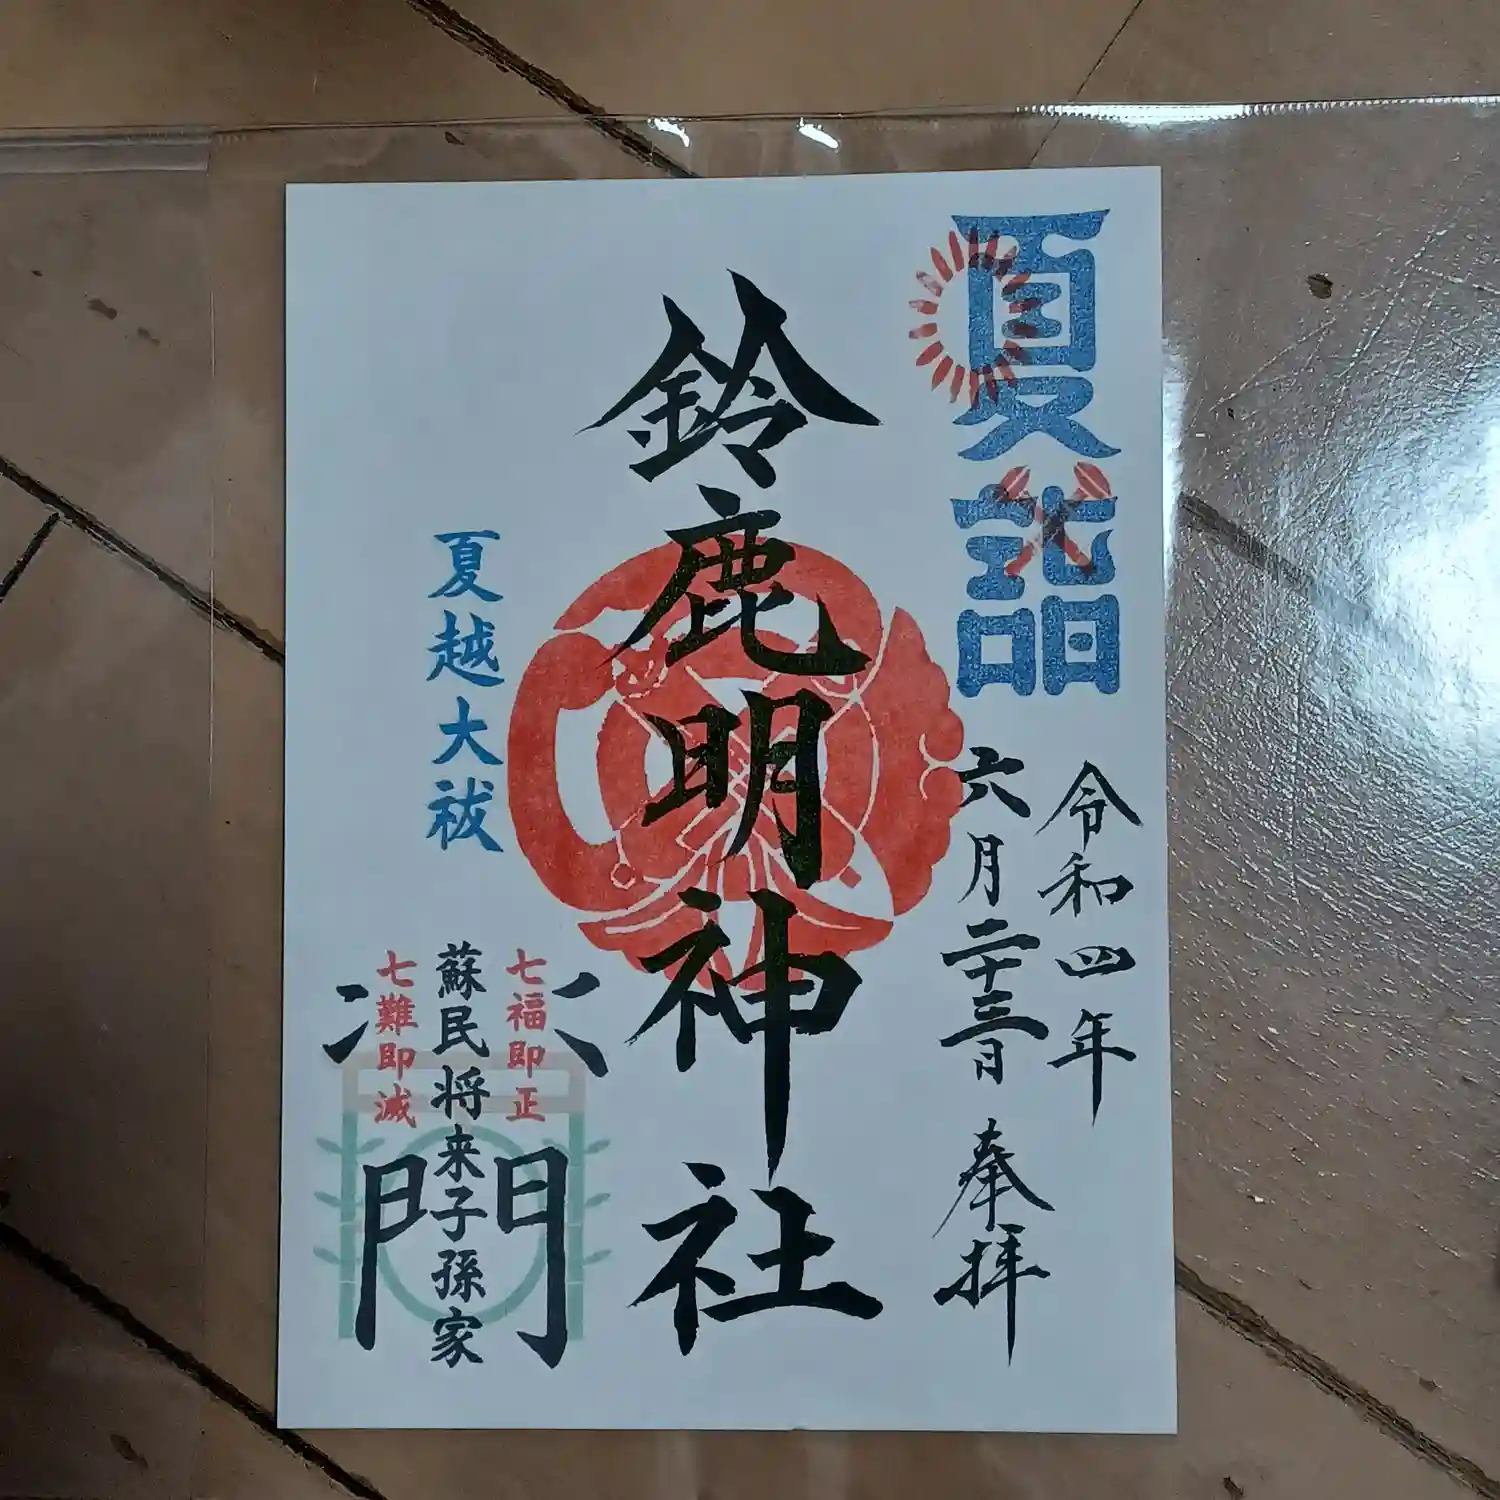 夏詣
令和四年
六月二十三日 奉拝
鈴鹿明神社
夏越大祓
七福即正
蘇民将来子孫家
門
七難即滅